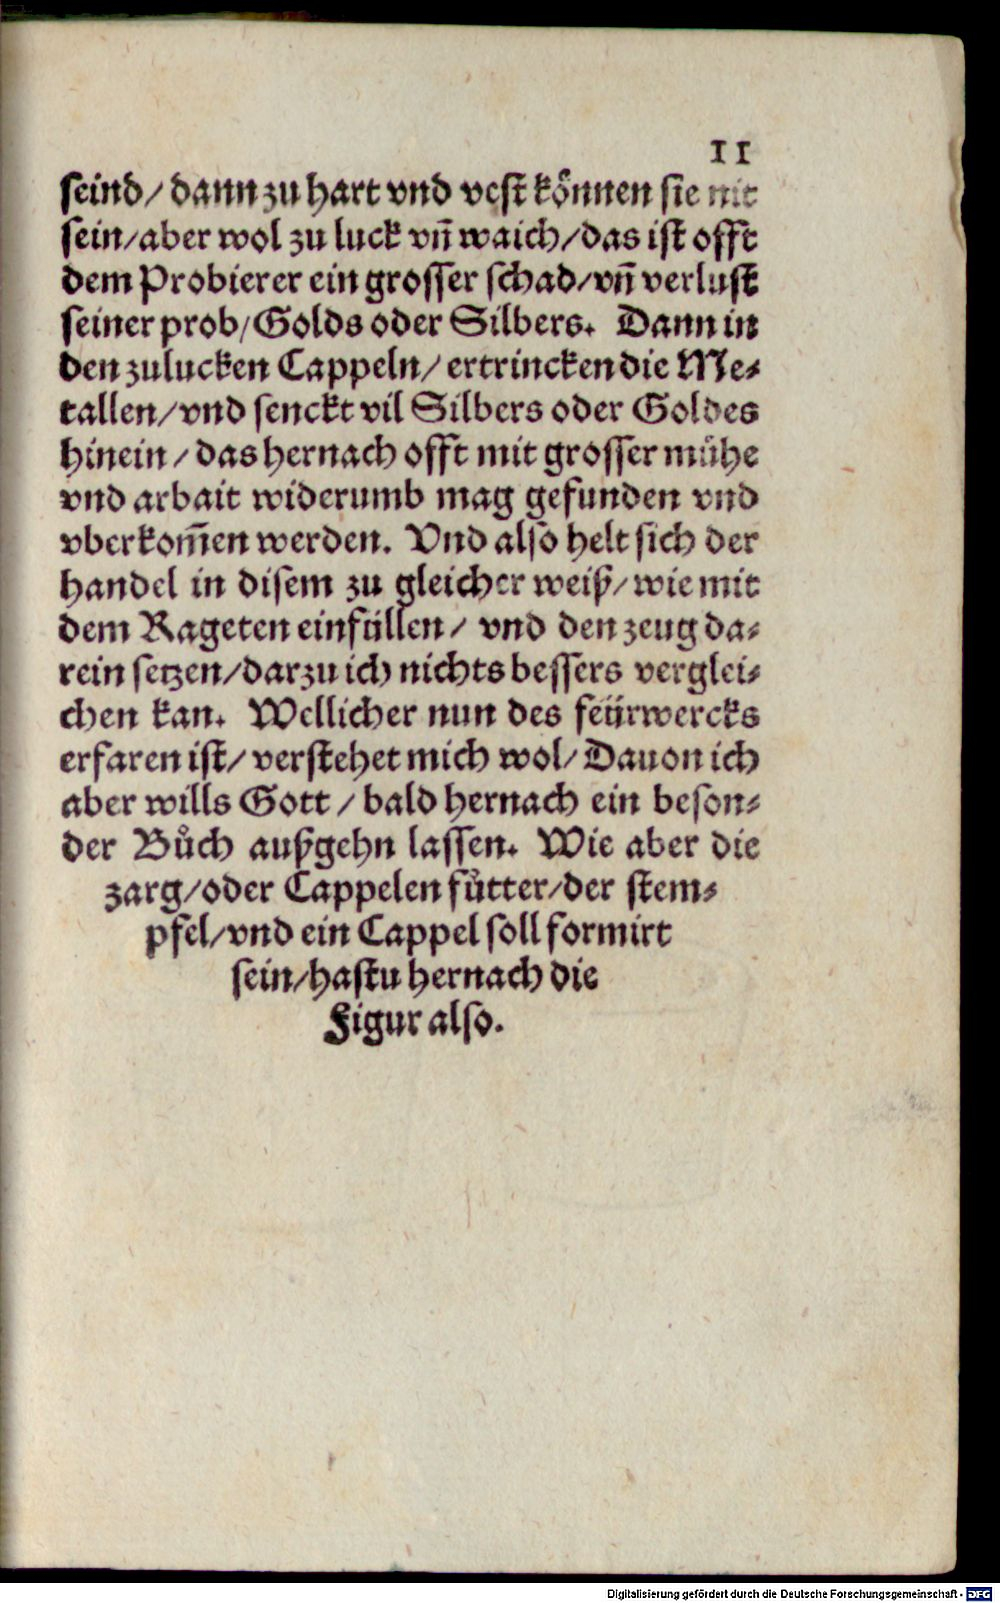 11
seind/ dann zu hart vnd vest können sie nit
sein/aber wol zu luck vñ waich/das ist offt
dem Probierer ein grosser schad/vñ verlust
seiner prob/Golds oder Silbers. Dann in
den zulucken Cappeln/ ertrincken die Me⸗
tallen/vnd senckt vil Silbers oder Goldes
hinein/das hernach offt mit grosser mühe
vnd arbait widerumb mag gefunden vnd
vberkom̃en werden. Vnd also helt sich der
handel in disem zu gleicher weiß/wie mit
dem Rageten einfüllen/ vnd den zeug da⸗
rein setzen/darzu ich nichts bessers verglei⸗
chen kan. Wellicher nun des feürwercks
erfaren ist/ verstehet mich wol/ Dauon ich
aber wills Gott/ bald hernach ein beson⸗
der Bůch außgehn lassen. Wie aber die
zarg/oder Cappelen fůtter/der stem⸗
pfel/vnd ein Cappel soll formirt
sein/hastu hernach die
Figur also.
Digitalisierung gefördert durch die Deutsche Forschungsgemeinschaft - DFG